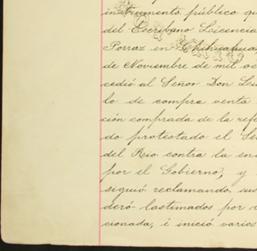 instrumento público qu
del Escribano Licencia
Porras en Chihuahua
de Noviembre de mil oc
cedió al Señor Don Lui
lo de compra venta
ción comprada de la refe
do protestado el Se
del Rio contra la en
por el Gobierno, y
siguió reclamando sus
deró lastimados por
cionada, é inició varios